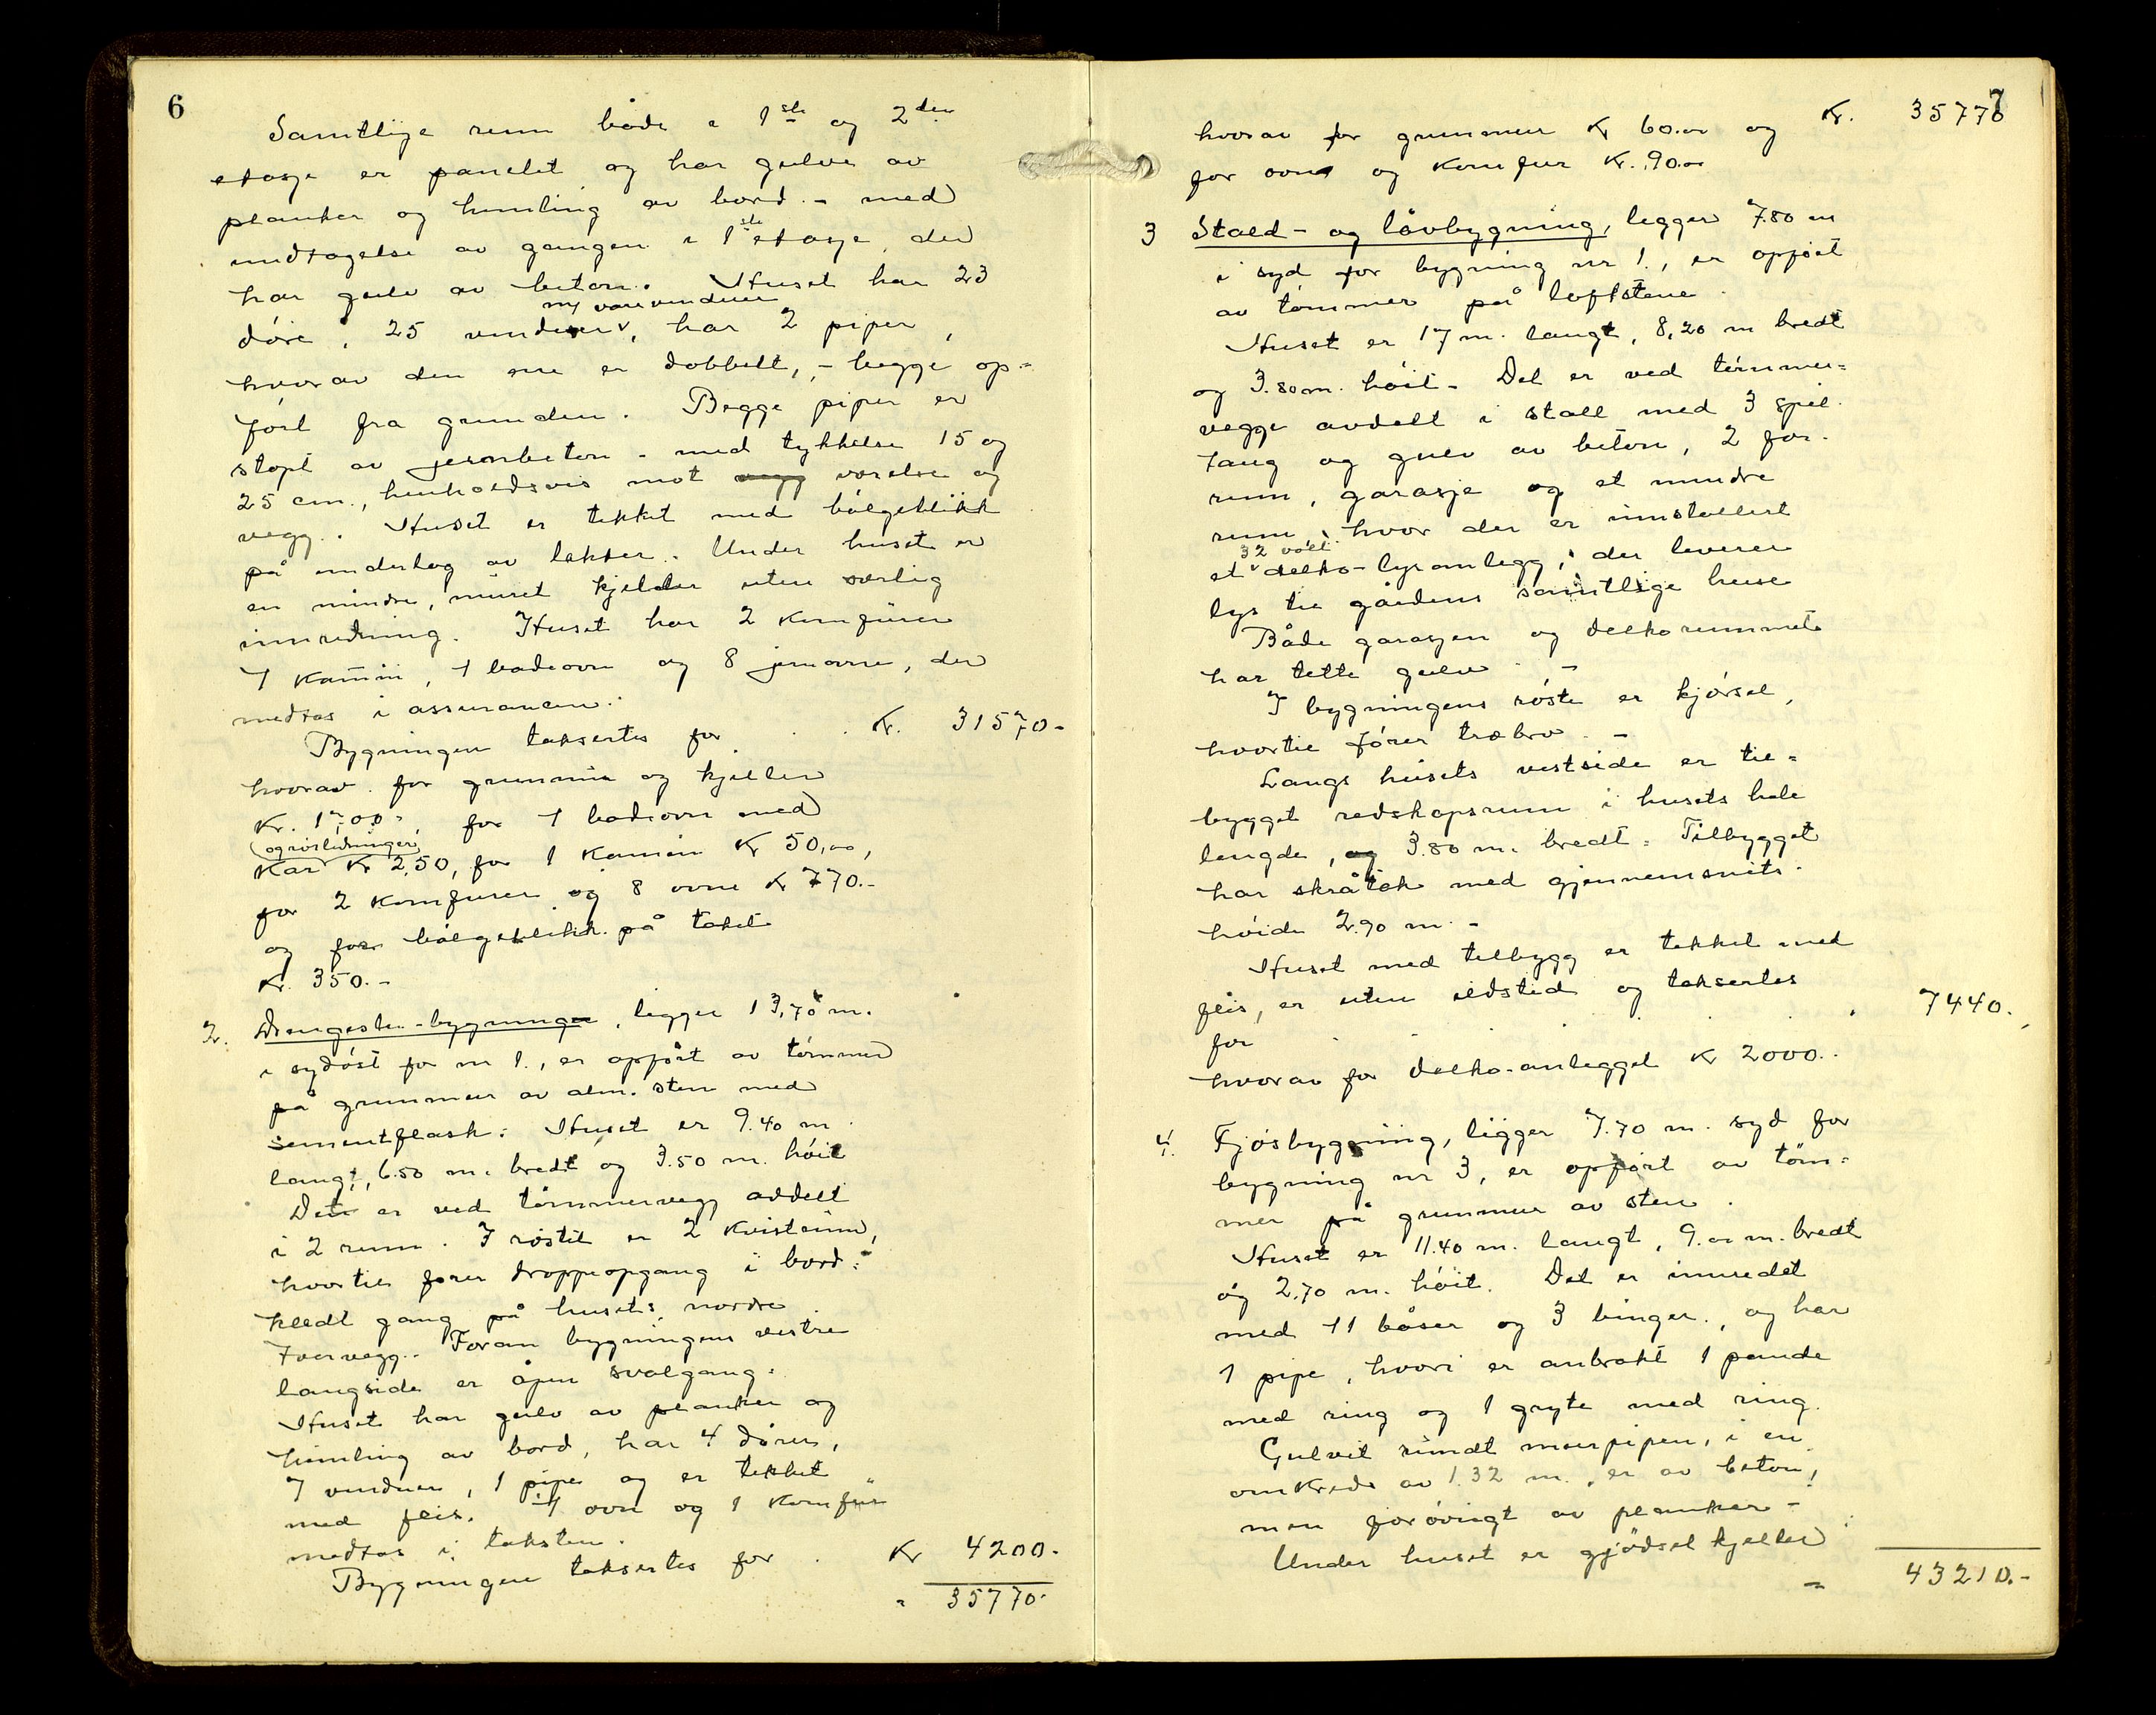 6
Samtlige rum både i 1ste og 2den
etasje er panelet og har gulve av
planker og himling av bord. - med
undtagelse av gangen i 1ste etasje, der
har gulv av beton. Huset har 23
m/ varevinduer
døre, 25 vinduer, har 2 piper,
hvorav den ene er dobbelt, - begge op=
ført fra grunden. Begge piper er
støpt av jernbeton - med tykkelse 15 og
25 cm., henholdsvis mot vegg værelse og
vegg. Huset er tekket med bølgeblikk
på underlag av lekter. Under huset er
en mindre, muret kjelder uten særlig
innredning. Huset har 2 komfürer
1 kamin, 1 badeovn og 8 jernovne, der
medtas i assurancen.
Bygningen taksertes for . . Kr. 31570-
hvorav for grunmur og kjeller
Kr. 1700- for 1 badeovn med
og rørledninger
kar Kr 250, for 1 kamin Kr 50,00,
for 2 komfurer og 8 ovne Kr 770.-
og for bølgeblikk på taket
Kr. 350.-
2. Drengestu-bygningen, ligger 13,70 m.
i sydøst for nr 1., er opført av tømmer
på grunmur av alm. sten med
sementflask. Huset er 9.40 m
langt, 6.50 m. bredt og 3.50 m. høit
Det er ved tømmervegg avdelt
i 2 rum. I røstet er 2 kvistrum,
hvortil fører droppeopgang i bord=
kledt gang på husets nordre
tvervegg. Foran bygningens vestre
langside er åpen svalgang.
Huset har gulv av planker og
himling av bord, har 4 dører,
7 vinduer, 1 pipe og er tekket
med flis. 1 ovn og 1 komfur
medtas i taksten.
Bygningen taksertes for . Kr 4200.
" 35770-
7
hvorav for grunmur Kr 60.00 og Kr. 35770
for ovn og komfur Kr. 90.00
3 Stald- og låvbygning, ligger 7.80 m
i syd for bygning nr 1., er opført
av tømmer på løftstene.
Huset er 17 m. langt, 8,20 m bredt
og 3.80 m. høit. Det er ved tømmer=
vegge avdelt i stall med 3 spil
taug og gulv av beton, 2 for-
rum, garasje og et mindre
rum, hvor der er innstallert
32 volt
et delko-lysanlegg, der leverer
lys til gårdens samtlige huse
Både garasjen og delkorummet
har tette gulv. -
I bygningens røste er kjørsel,
hvortil fører træbro. -
Langs husets vestside er til=
bygget redskapsrum i husets hele
lengde, og 3.80 m. bredt. Tilbygget
har skråtak med gjennemsnits-
høide 2.90 m. -
Huset med tilbygg er tekket med
flis, er uten ildsted og taksertes
for . . . . 7440.
hvorav for delko-anlegget Kr 2000..
4. Fjøsbygning, ligger 7.70 m. syd for
bygning nr 3, er opført av tøm=
mer på grunmur av sten.
Huset er 11.40 m. langt, 9.00 m. bredt
og 2.70 m. høit. Det er innredet
med 11 båser og 3 binger., og har
1 pipe, hvori er anbrakt 1 pande
med ring og 1 gryte med ring.
Gulvet rundt murpipen, i en
omkreds av 1.32 m., er av beton,
men forøvrigt av planker -
Under huset er gjødselkjeller
- 43210.-